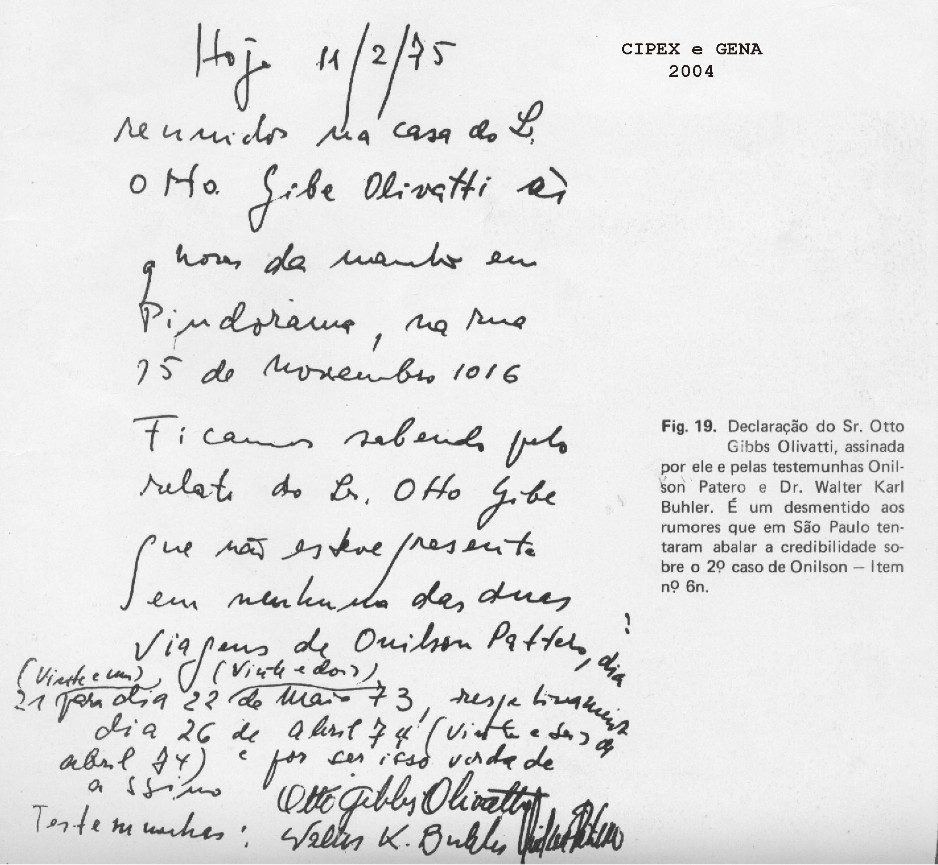 CIPEX e GENA
2004
Hoje 11/2/75
reunidos na casa do Sr.
Otto Gibe Olivatti às
9 horas da manhã em
Pindorama, na rua
15 de novembro 1016
Ficamos sabendo pelo
relato do Sr. Otto Gibe
que não esteve presente
em nenhuma das duas
viagens de Onilson Pattero, dia
(Vinte e um) (Vinte e dois)
21 para dia 22 de Maio 73, respetivamente
dia 26 de Abril 74 (Vinte e seis de
abril 74) e por ser isso verdade
assino Otto Gibbs Olivatti
Testemunhas: Walter K. Buhler
Fig. 19. Declaração do Sr. Otto
Gibbs Olivatti, assinada
por ele e pelas testemunhas Onil-
son Patero e Dr. Walter Karl
Buhler. É um desmentido aos
rumores que em São Paulo ten-
taram abalar a credibilidade so-
bre o 2º caso de Onilson — Item
nº 6n.